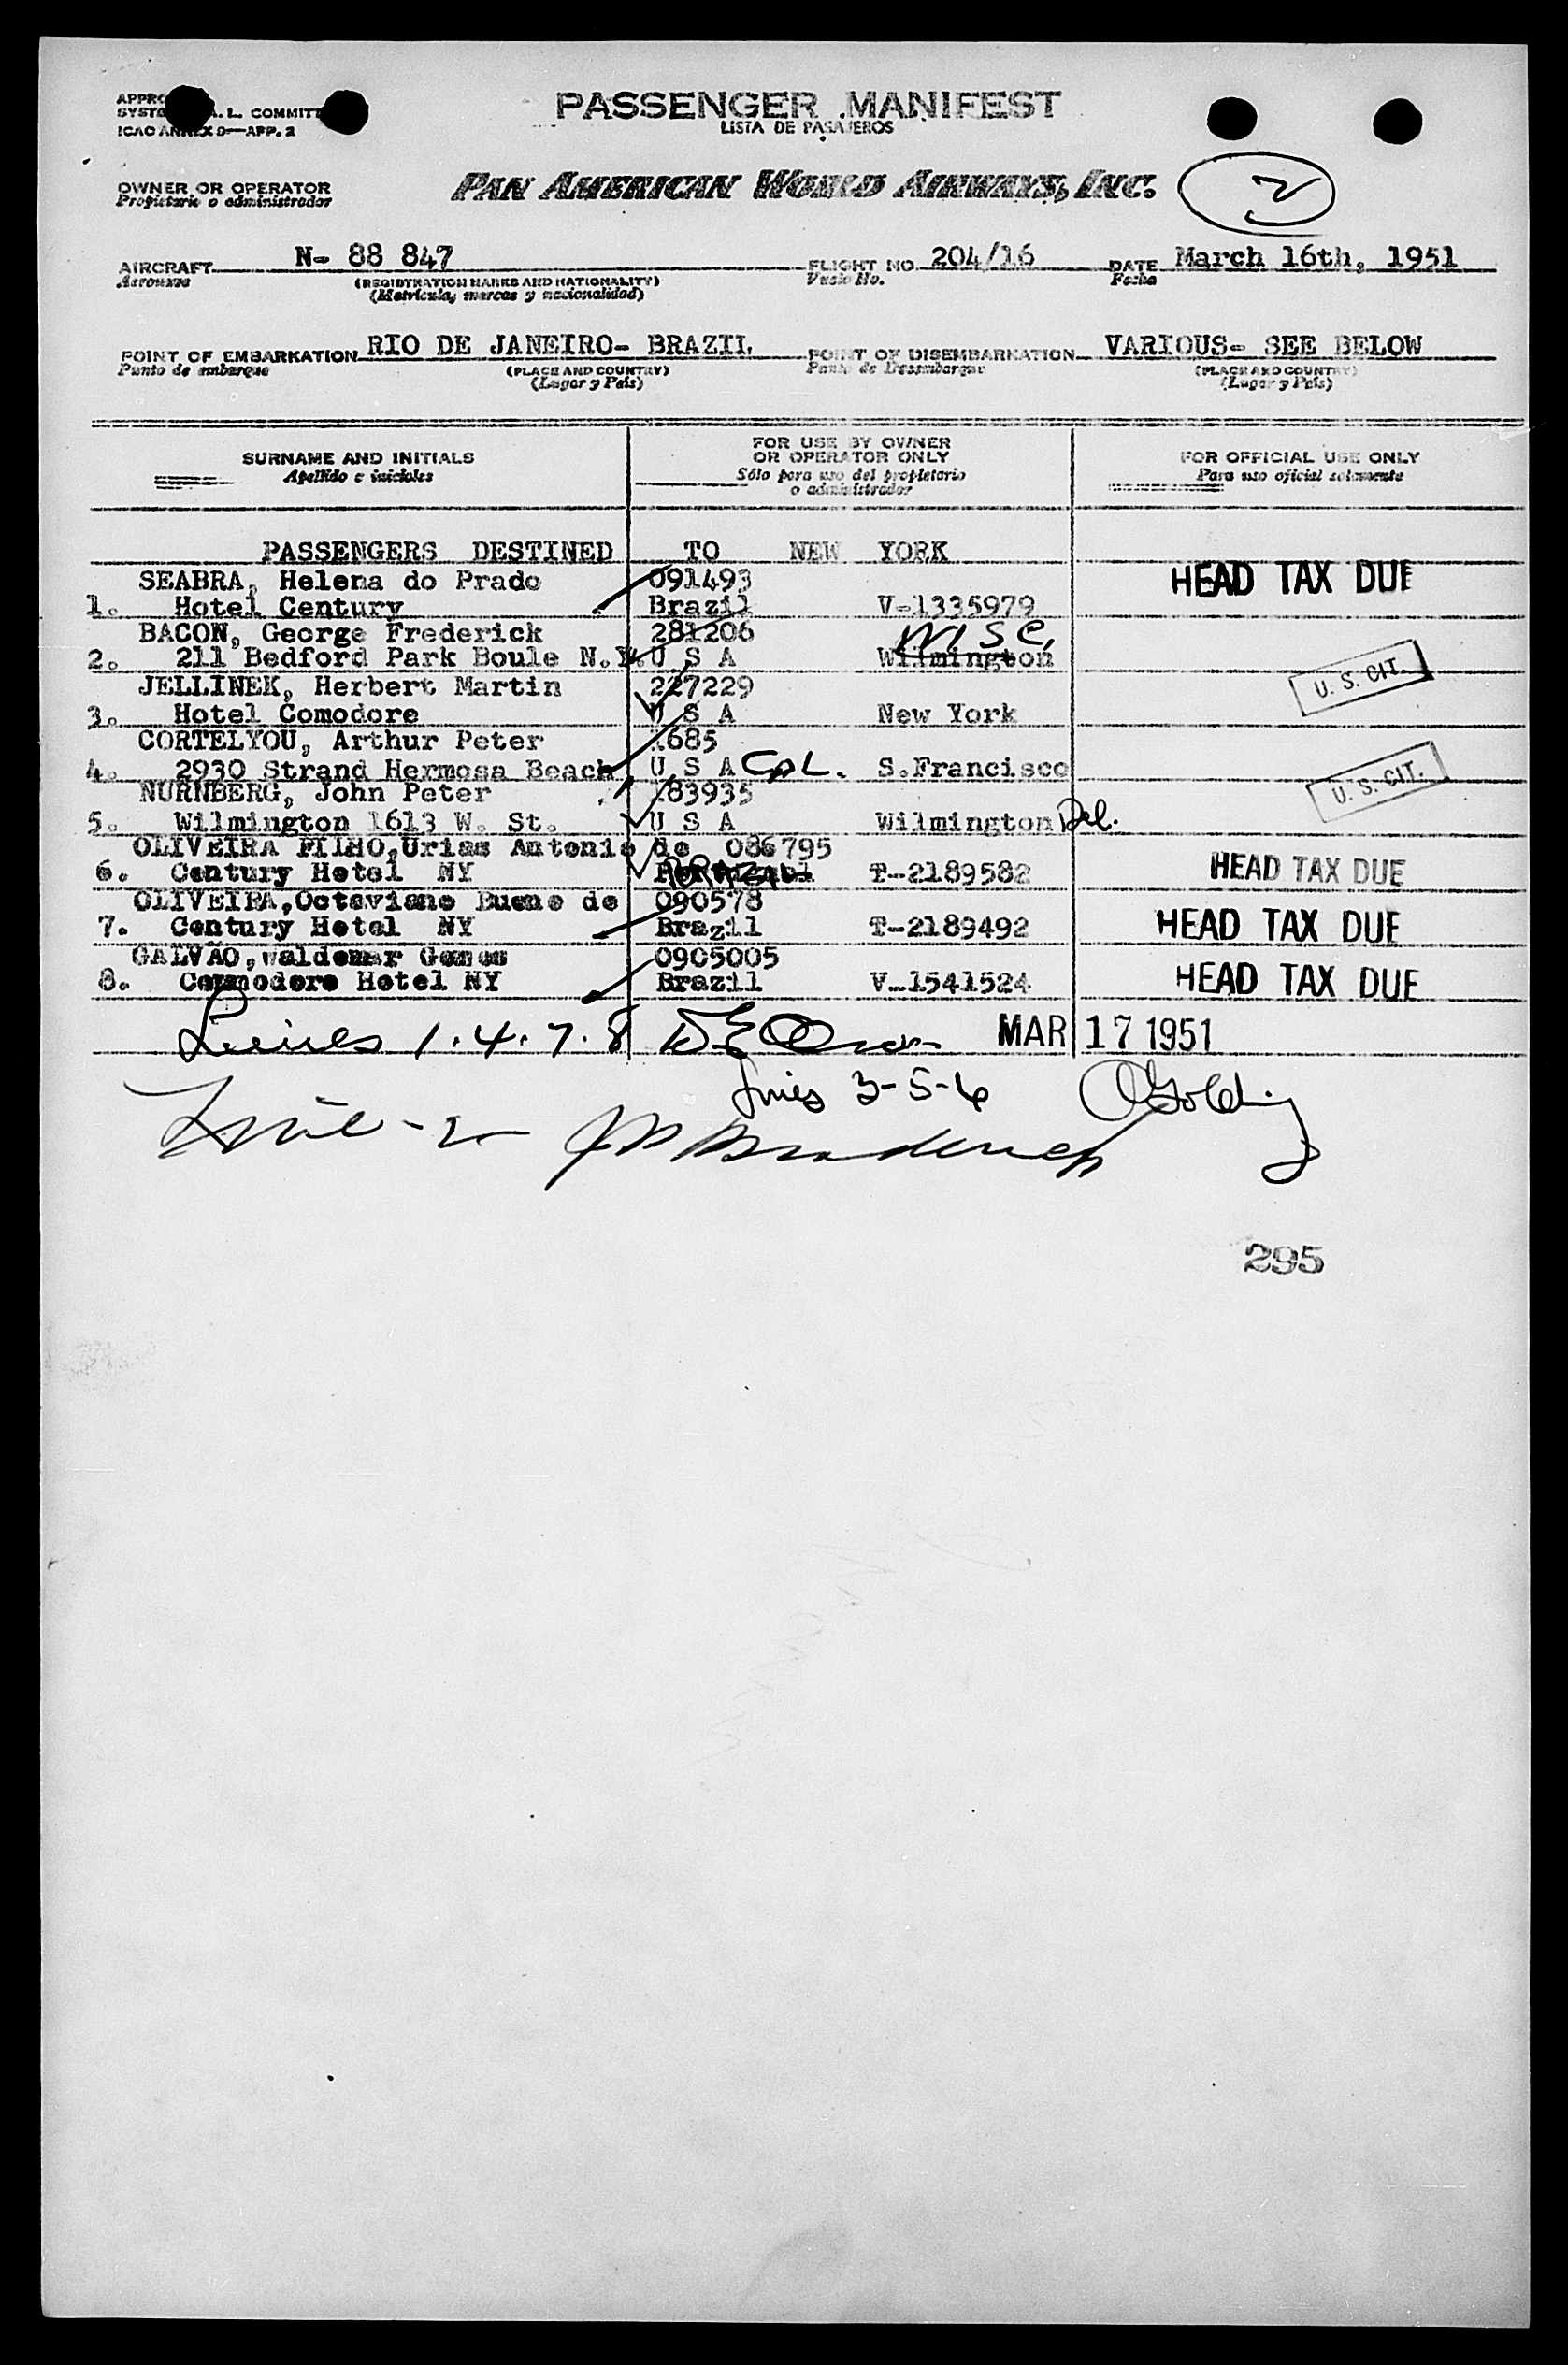 PASSENGER MANIFEST
LISTA DE PASAJEROS
L. COMMITT
ICAO ANNEX 9—APP. 2
OWNER OR OPERATOR
Propietario o administrador
PAN AMERICAN WORLD AIRWAYS, INC.
2
AIRCRAFT N- 88 847 FLIGHT NO. 204/16 DATE March 16th, 1951
Aeronave (REGISTRATION MARKS AND NATIONALITY) Vuelo No. Fecha
(Matrícula, marcas y nacionalidad)
POINT OF EMBARKATION RIO DE JANEIRO- BRAZIL POINT OF DISEMBARKATION VARIOUS- SEE BELOW
Punto de embarque (PLACE AND COUNTRY) Punto de Desembarque (PLACE AND COUNTRY)
(Lugar y País) (Lugar y País)
SURNAME AND INITIALS FOR USE BY OWNER OR OPERATOR ONLY FOR OFFICIAL USE ONLY
Apellido e iniciales Sólo para uso del propietario o administrador Para uso oficial solamente
PASSENGERS DESTINED TO NEW YORK
SEABRA, Helena do Prado 091493 HEAD TAX DUE
1. Hotel Century Brazil V-1335979
BACON, George Frederick 281206 WISC.
2. 211 Bedford Park Boule N.Y. U S A Wilmington U. S. CIT.
JELLINEK, Herbert Martin 227229
3. Hotel Comodore U S A New York
CORTELYOU, Arthur Peter 1685
4. 2930 Strand Hermosa Beach U S A CAL. S.Francisco U. S. CIT.
NURNBERG, John Peter 183935
5. Wilmington 1613 W. St. U S A Wilmington Del.
OLIVEIRA FILHO,Urias Antonio de 086795
6. Century Hotel NY BRAZIL T-2189582 HEAD TAX DUE
OLIVEIRA,Octaviano Bueno de 090578
7. Century Hotel NY Brazil T-2189492 HEAD TAX DUE
GALVAO,Waldemar Gomes 0905005
8. Commodore Hotel NY Brazil V-1541524 HEAD TAX DUE
Lines 1.4.7.8 MAR 17 1951
Lines 3-5-6 Golding
Line - 2
295